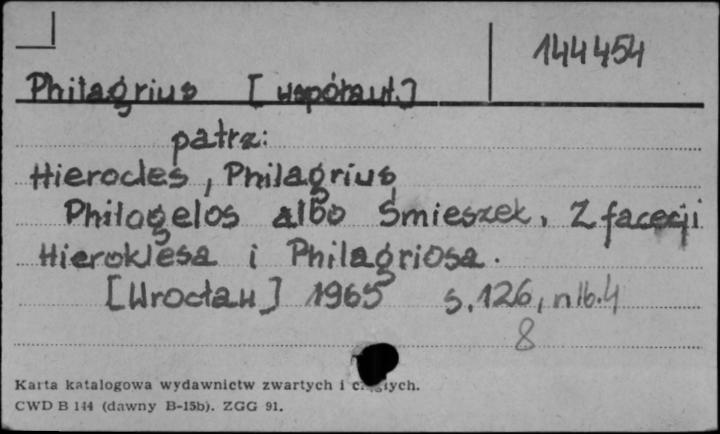 144454
Philagrius [współaut.]
patrz:
Hierocles, Philagrius
Philogelos albo Śmieszek. Z facecji
Hieroklesa i Philagriosa.
[Wrocław] 1965 s. 126, nlb. 4
8
Karta katalogowa wydawnictw zwartych i
CWD B 144 (dawny B-15b). ZGG 91.